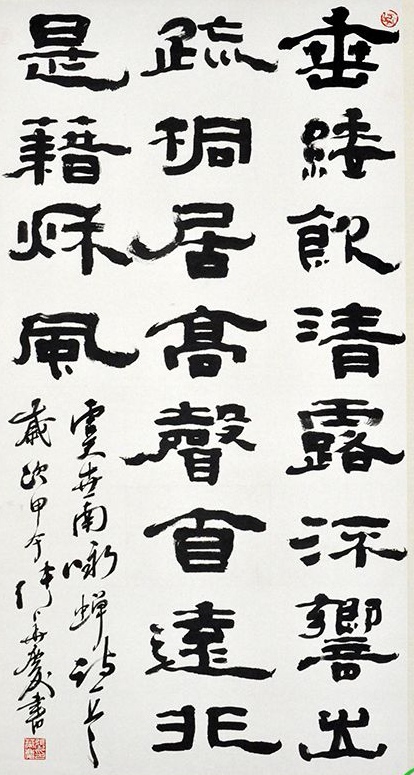 垂緌飲清露流響出
疏桐居高聲自遠非
是藉秋風
虞世南咏蝉詩一首
歲次甲午華慶書